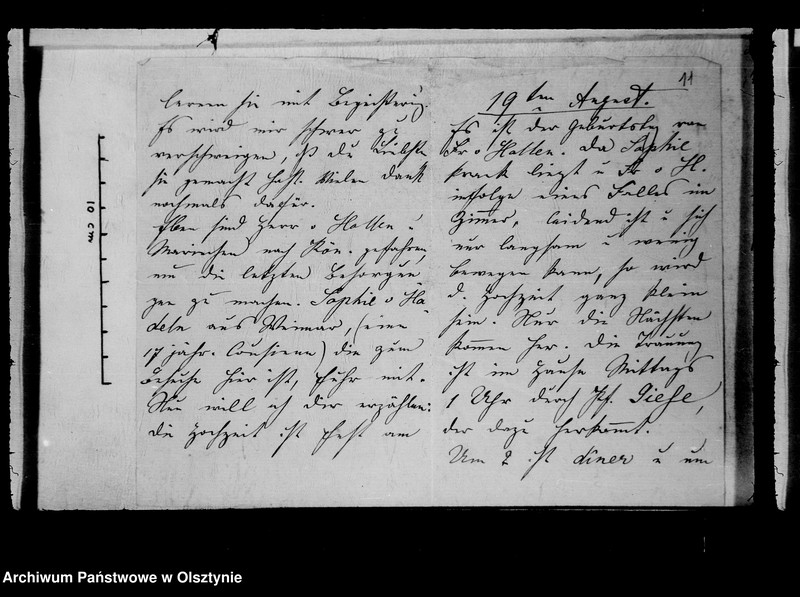 lernen sie mit Begeisterung.
Es wird mir schwer zu
verschweigen, daß du
sie gemacht hast. Vielen Dank
nochmals dafür.
Eben sind Herr v Hollen u
Mariechen nach Kön. gefahren,
um die letzten Besorgun
gen zu machen. Sophie v Ha
deln aus Weimar, (eine
17 jähr. Cousiene) die zum
Besuche hier ist, fuhr mit.
Nun will ich dir erzählen:
die Hochzeit ist fest am
11
19ten August.
Es ist der Geburtstag von
Fr v Hollen. Da Sophie
krank liegt u Fr v H.
infolge eines Falles im
Zimmer, leidend ist u sich
nur langsam u wenig
bewegen kann, so wird
d. Hochzeit ganz klein
sein. Nur die Nächsten
kommen her. Die Trauung
ist im Hause Mittags
1 Uhr durch Pf. Giese,
der dazu herkommt.
Um 2 ist diner u um
10 cm
Archiwum Państwowe w Olsztynie